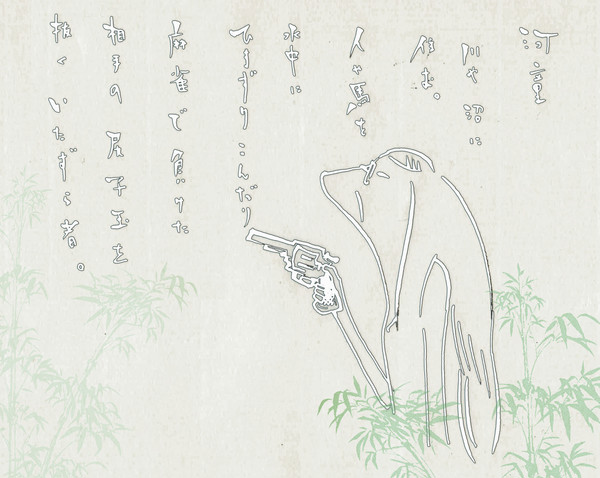 河童
川や沼に
住む。
人や馬を
水中に
ひきずりこんだり
麻雀で負けた
相手の尻子玉を
抜くいたずら者。